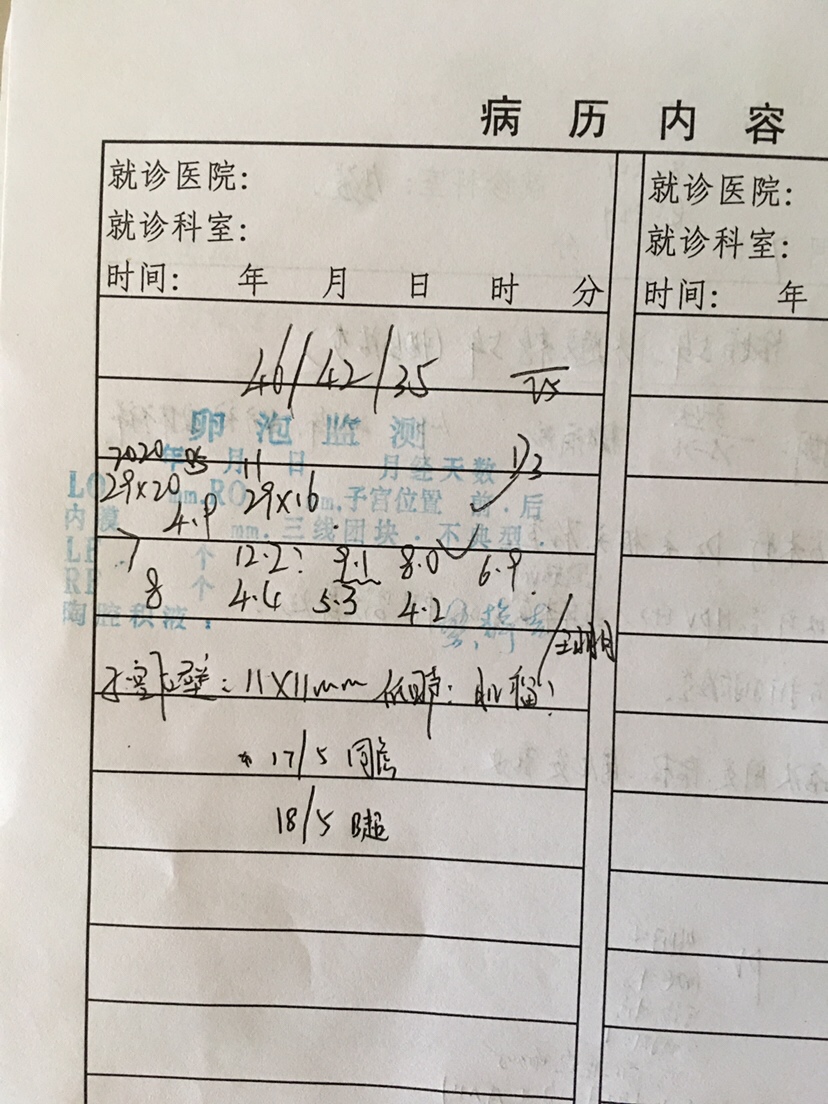 病 历 内 容
就诊医院:
就诊科室:
时间: 年 月 日 时 分
46/42/35 25
卵 泡 监 测
2020 年 05 月 11 日 月经天数 13
LO 29×20 mm.RO 29×16 mm.子宫位置 前.后
内膜 4.9 mm.三线团块.不典型.
LF 7 个 12.2? 9.1 8.0 6.9
RF 8 个 4.4 5.3 4.2
陶腔积液:
子宫下壁: 11×11mm 低回声: 肌瘤?
17/5 同房
18/5 B超
就诊医院:
就诊科室:
时间: 年